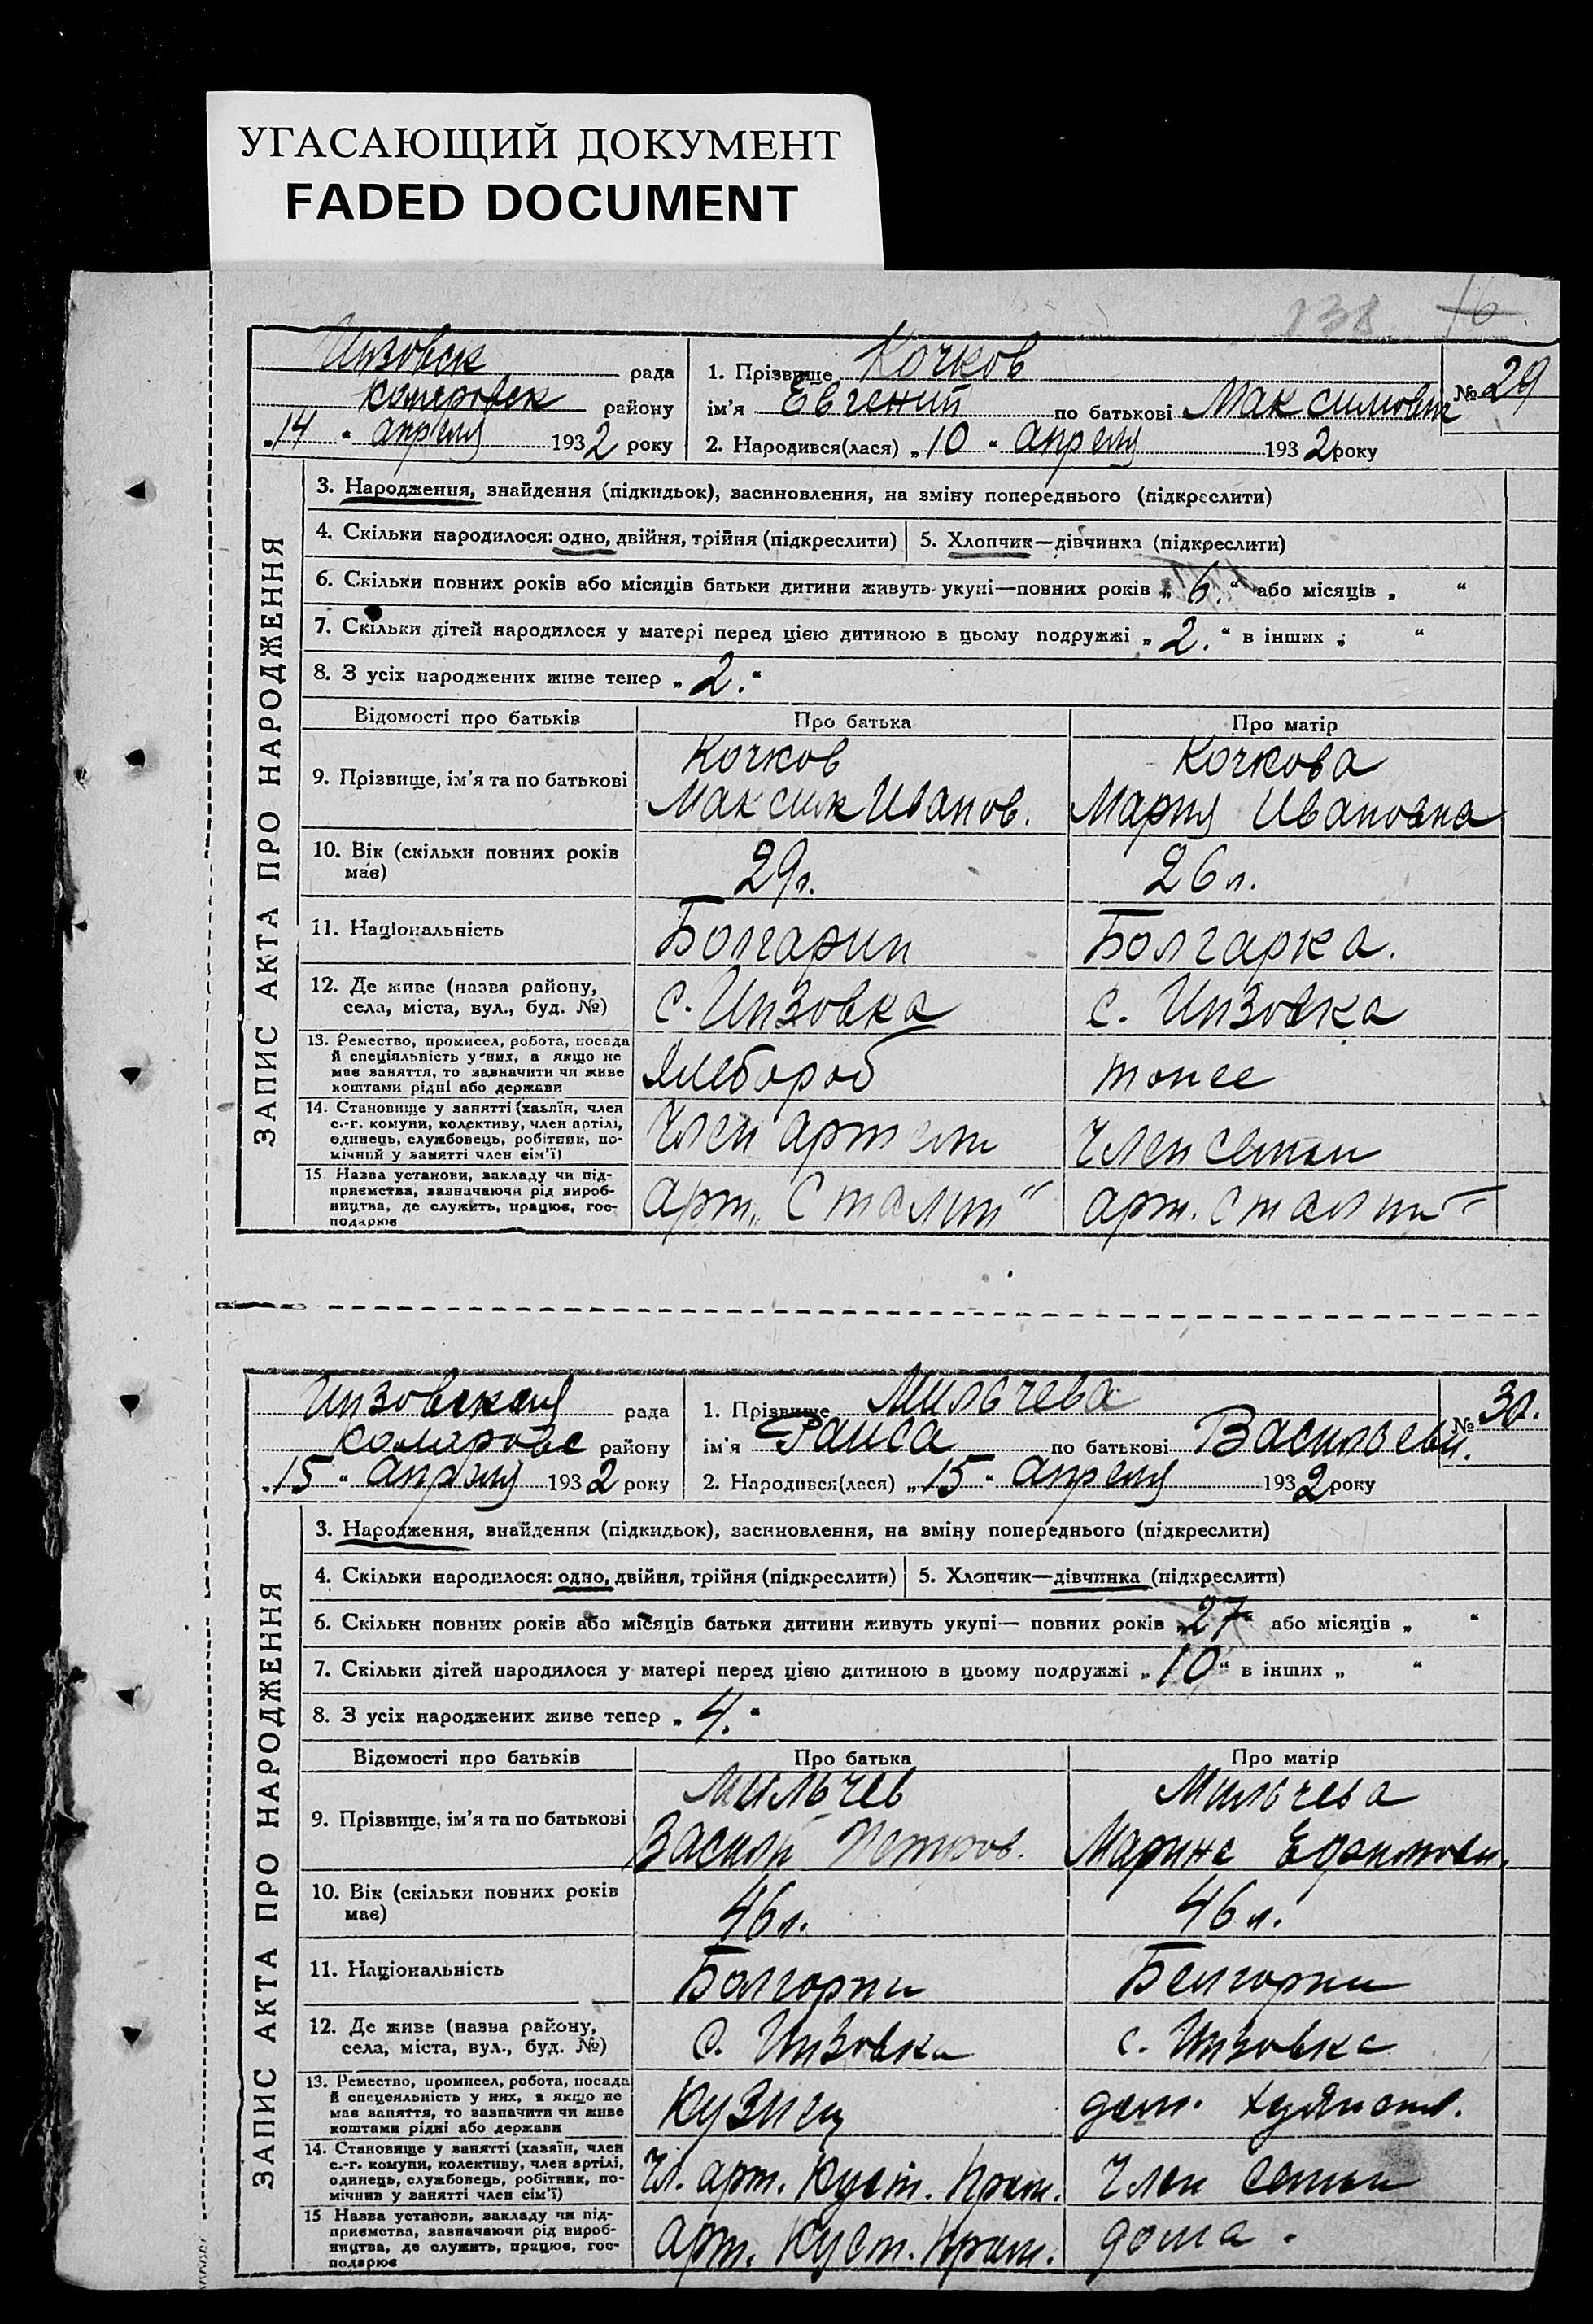 УГАСАЮЩИЙ ДОКУМЕНТ
FADED DOCUMENT
138 16
ЗАПИС АКТА ПРО НАРОДЖЕННЯ
Инзовск рада
Комаровск району
„14" апреля 1932 року
1. Прізвище Кочков
ім'я Евгений по батькові Максимович
№ 29
2. Народився(лася) „10" апреля 1932 року
3. Народження, знайдення (підкидьок), засиновлення, на зміну попереднього (підкреслити)
4. Скільки народилося: одно, двійня, трійня (підкреслити)
5. Хлопчик—дівчинка (підкреслити)
6. Скільки повних років або місяців батьки дитини живуть укупі—повних років „6." або місяців „ "
7. Скільки дітей народилося у матері перед цією дитиною в цьому подружжі „2." в інших „ "
8. З усіх народжених живе тепер „2."
Відомості про батьків Про батька Про матір
9. Прізвище, ім'я та по батькові
Кочков
Максим Иванов.
Кочкова
Мария Ивановна
10. Вік (скільки повних років
має)
29л.
26 л.
11. Національність
Болгарин
Болгарка.
12. Де живе (назва району,
села, міста, вул., буд. №)
с. Инзовка
с. Инзовка
13. Ремество, промисел, робота, посада
й спеціяльність у них, а якщо не
має заняття, то зазначити чи живе
коштами рідні або держави
Хлебороб
тоже
14. Становище у занятті (хазяїн, член
с.-г. комуни, колективу, член артілі,
одинець, службовець, робітник, по-
мічний у занятті член сім'ї)
Член артели
Член семьи
15. Назва установи, закладу чи під-
приємства, зазначаючи рід вироб-
ництва, де служить, працює, гос-
подарює
арт. „Сталин"
арт. Сталин"
ЗАПИС АКТА ПРО НАРОДЖЕННЯ
Инзовская рада
Комаровс району
„15" апреля 1932 року
1. Прізвище Мильчева
ім'я Раиса по батькові Васильевн.
№ 30.
2. Народився(лася) „15" апреля 1932 року
3. Народження, знайдення (підкидьок), засиновлення, на зміну попереднього (підкреслити)
4. Скільки народилося: одно, двійня, трійня (підкреслити)
5. Хлопчик—дівчинка (підкреслити)
6. Скільки повних років або місяців батьки дитини живуть укупі— повних років „27" або місяців „ "
7. Скільки дітей народилося у матері перед цією дитиною в цьому подружжі „10" в інших „ "
8. З усіх народжених живе тепер „4."
Відомості про батьків Про батька Про матір
9. Прізвище, ім'я та по батькові
Мильчев
Васили Петров.
Мильчева
Марина Ефимовн.
10. Вік (скільки повних років
має)
46 л.
46 л.
11. Національність
Болгорин
Болгорин
12. Де живе (назва району,
села, міста, вул., буд. №)
с. Инзовка
с. Инзовка
13. Ремество, промисел, робота, посада
й спецеяльність у них, а якщо не
має заняття, то зазначити чи живе
коштами рідні або держави
Кузнец
дом.
14. Становище у занятті (хазяїн, член
с.-г. комуни, колективу, член артілі,
одинець, службовець, робітник, по-
мічний у занятті член сім'ї)
Чл. арт. Куст. Пром.
Член семьи
15 Назва установи, закладу чи під-
приємства, зазначаючи рід вироб-
ництва, де служить, працює, гос-
подарює
арт. Куст. Пром.
дома.